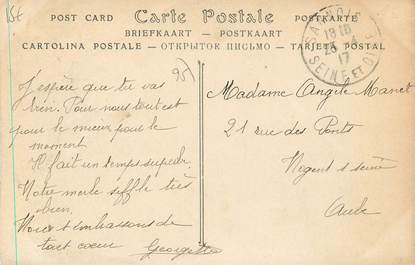 POST CARD Carte Postale POSTKARTE
BRIEFKAART - POSTKAART
CARTOLINA POSTALE - ОТКРЫТОЕ ПИСЬМО - TARJETA POSTAL
SANNOIS
18 15
23 - 4
17
SEINE ET OISE
95
J'espère que tu vas
bien. Pour nous tout est
pour le mieux pour le
moment
Il fait un temps superbe.
Notre merle siffle très
bien.
Nous t'embrassons de
tout coeur Georgette
Madame Angèle Manet
21 rue des Ponts
Nogent s seine
Aube